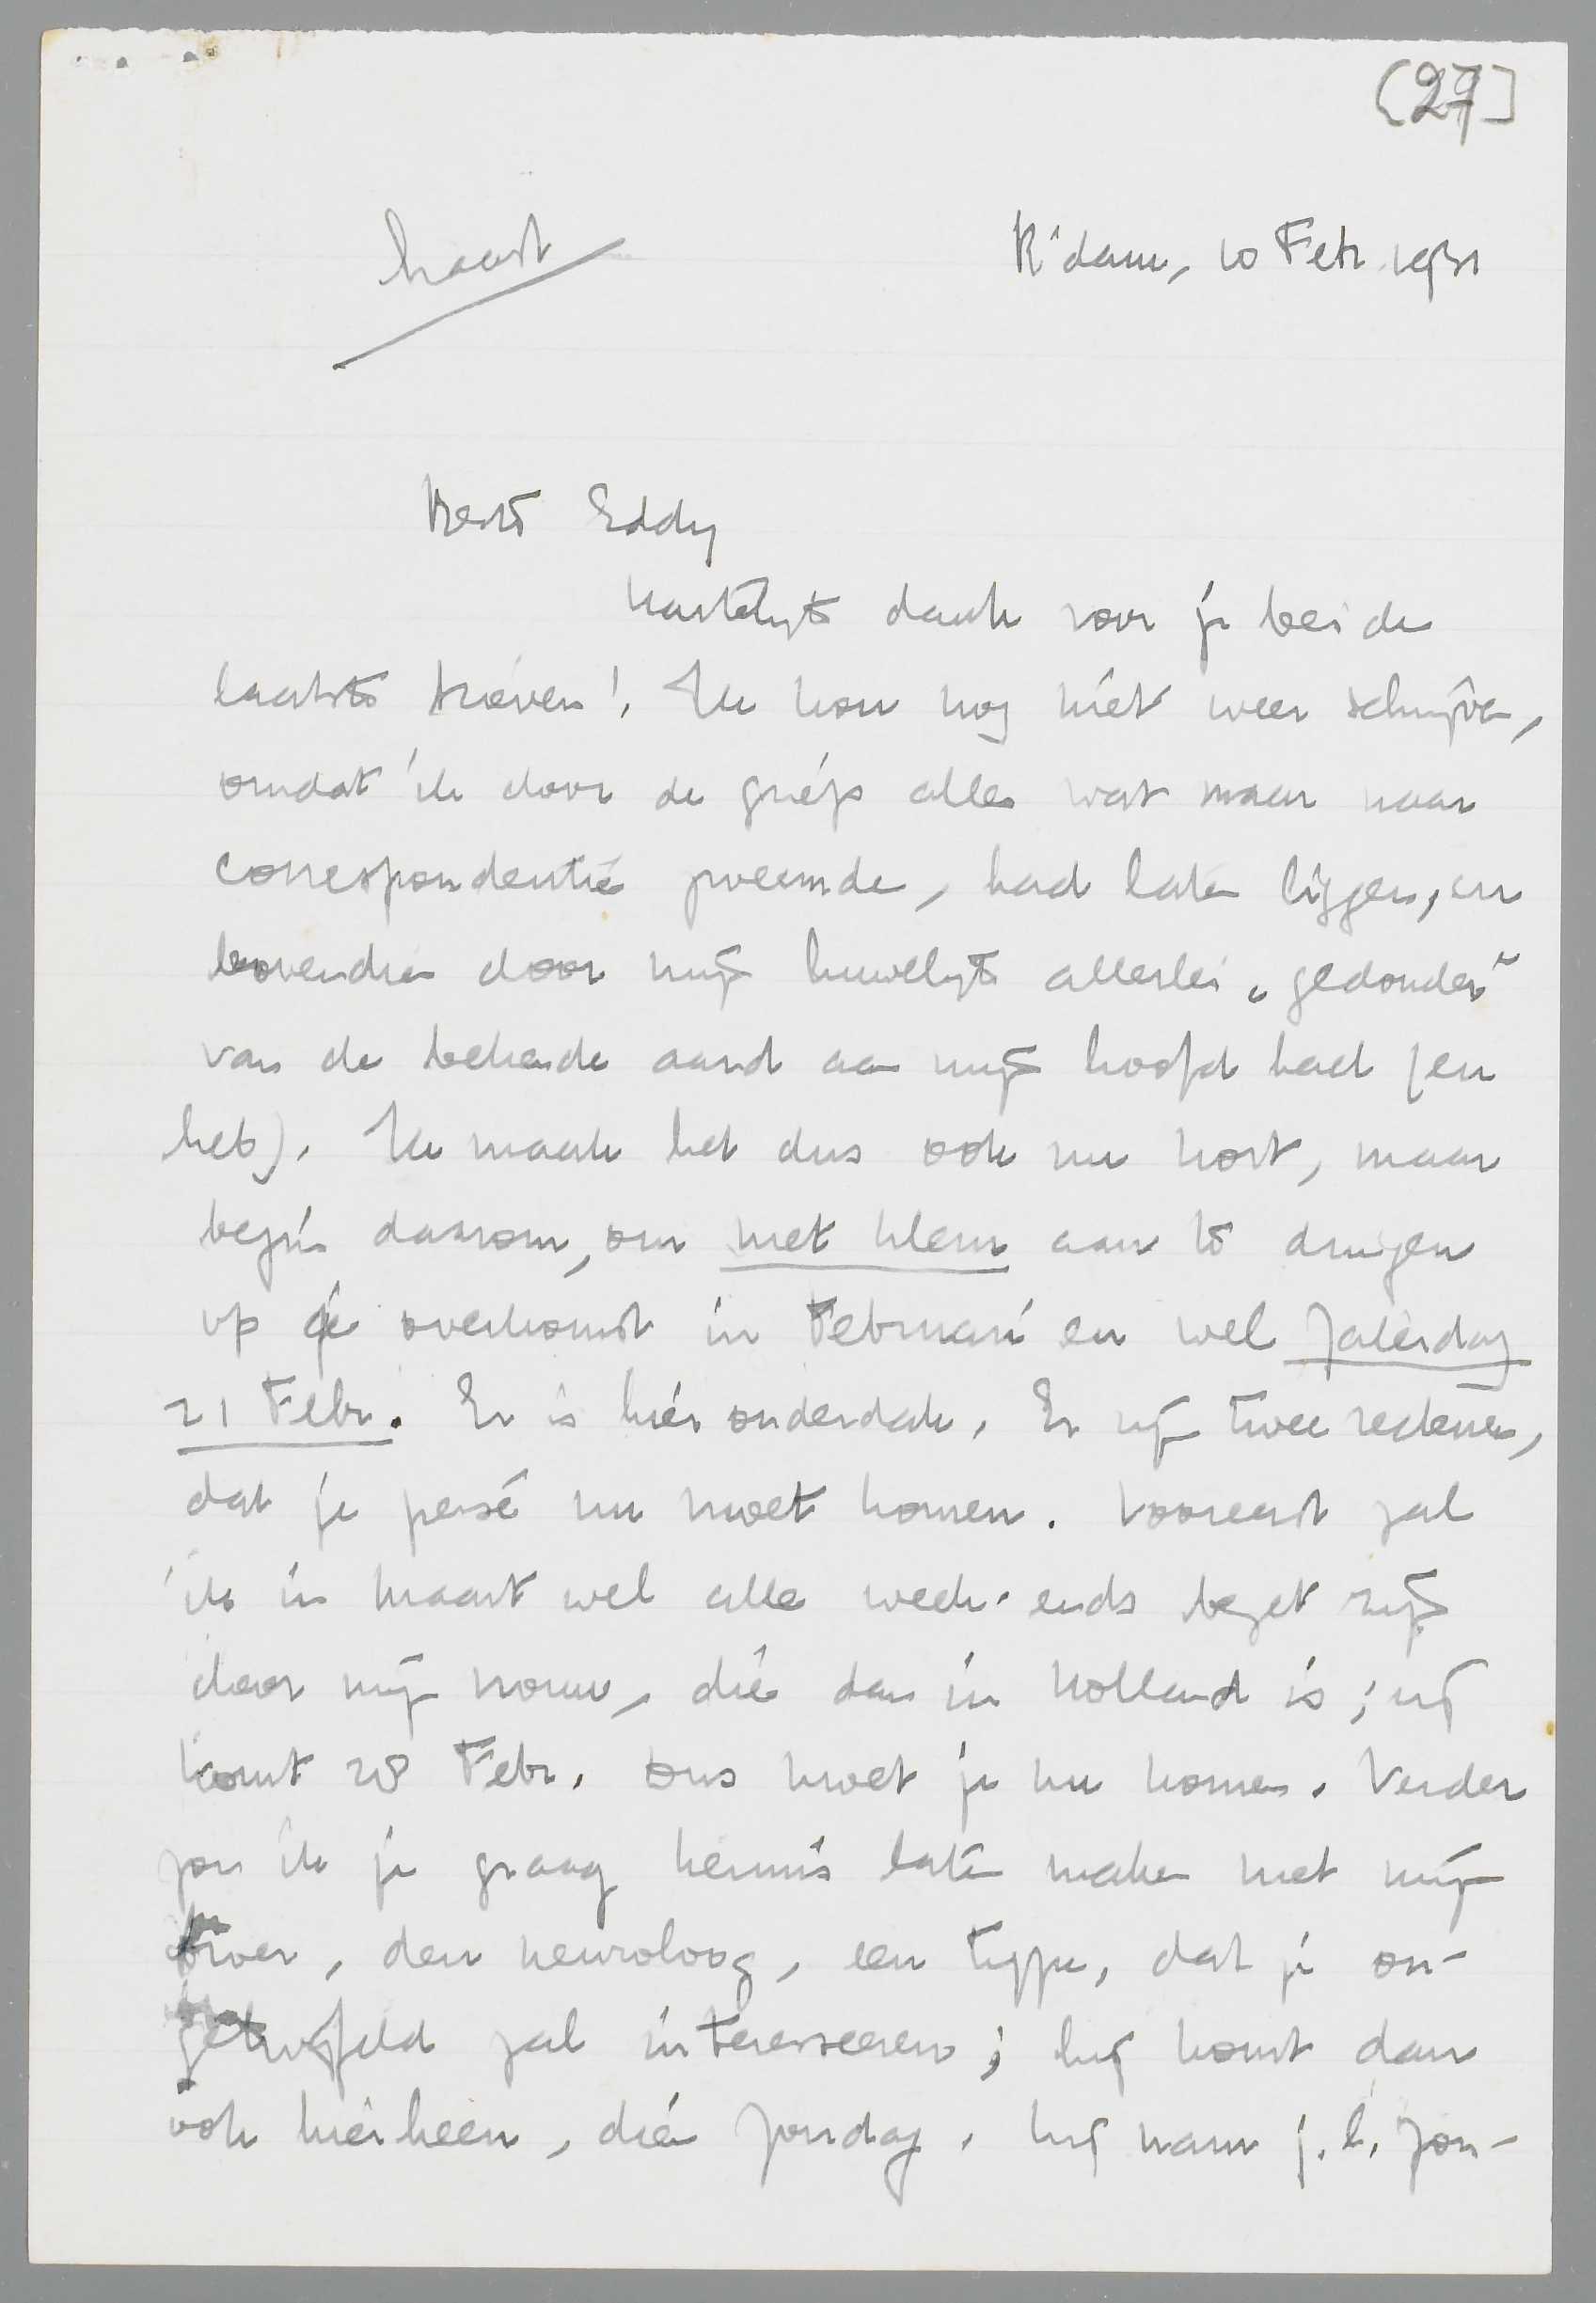 [27]
haast
R'dam, 10 Febr. 1931
Beste Eddy
Hartelijk dank voor je beide
laatste brieven! Ik kon nog niet weer schrijven,
omdat ik door de griep alles wat maar naar
correspondentie zweemde, had laten liggen, en
bovendien door mijn huwelijk allerlei „gedonder"
van de bekende aard aan mijn hoofd had (en
heb). Ik maak het dus ook nu kort, maar
begin daarom, om met klem aan te dringen
op je overkomst in Februari en wel Zaterdag
21 Febr. Er is hier onderdak. Er zijn twee redenen,
dat je persé nu moet komen. Vooreerst zal
ik in Maart wel alle week-ends bezet zijn
door mijn vrouw, die dan in Holland is; zij
komt 28 Febr. Dus moet je nu komen. Verder
zou ik je graag kennis laten maken met mijn
broer, den neuroloog, een type, dat je on-
getwijfeld zal interesseeren; hij komt dan
ook hierheen, dien Zondag. Hij nam j.l. Zon-